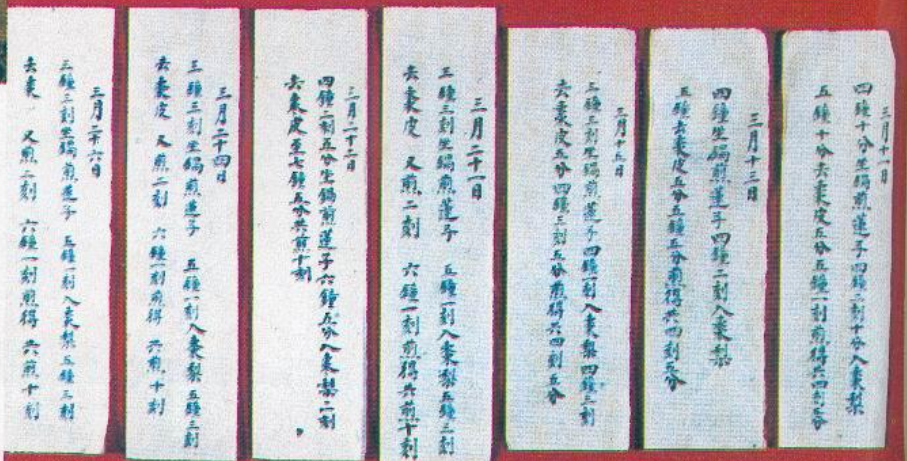 三月十一日
四鐘十分坐鍋煎蓮子四鐘二刻十分入棗梨
五鐘十分去棗皮五分五鐘一刻煎得共四刻五分
三月十三日
四鐘坐鍋煎蓮子四鐘二刻入棗梨
五鐘去棗皮五分五鐘五分煎得共四刻五分
三月十五日
三鐘三刻坐鍋煎蓮子四鐘一刻入棗梨四鐘三刻
去棗皮五分四鐘三刻五分煎得共四刻五分
三月二十一日
三鐘三刻坐鍋煎蓮子 五鐘一刻入棗梨五鐘三刻
去棗皮 又煎二刻 六鐘一刻煎得共煎十刻
三月二十二日
四鐘二刻五分坐鍋煎蓮子六鐘五分入棗梨二刻
去棗皮至七鐘五分共煎十刻
三月二十四日
三鐘三刻坐鍋煎蓮子 五鐘一刻入棗梨五鐘三刻
去棗皮 又煎二刻 六鐘一刻煎得 共煎十刻
三月二十六日
三鐘三刻坐鍋煎蓮子 五鐘一刻入棗梨五鐘三刻
去棗 又煎二刻 六鐘一刻煎得 共煎十刻